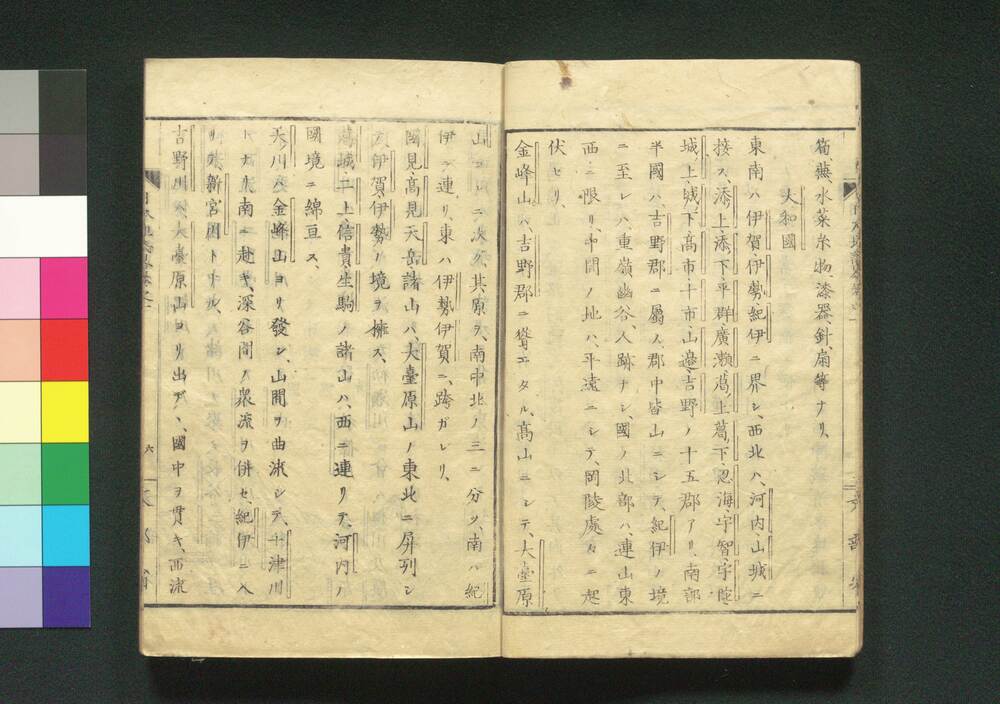 筍、蕪、水菜、糸物、漆器、針、扇等ナリ、
大和國
東南ハ伊賀、伊勢、紀伊ニ界シ、西北ハ、河内、山城ニ
接ス、添上、添下、平群、廣瀬、葛上、葛下、忍海、宇智、宇陀、
城上、城下、髙市、十市、山邉、吉野ノ十五郡アリ、南部
半國ハ、吉野郡ニ屬ス、郡中皆山ニシテ、紀伊ノ境
ニ至レハ、重嶺幽谷、人跡ナシ、國ノ北部ハ、連山東
西ニ限リ、中間ノ地ハ、平遠ニシテ、岡陵處々ニ起
伏セリ、
金峰山ハ、吉野郡ニ聳エタル、髙山ニシテ、大臺原
山コレニ次ク、其原ヲ、南中北ノ三ニ分ツ、南ハ紀
伊ニ連リ、東ハ伊勢伊賀ニ、跨ガレリ、
國見、髙見、天岳諸山ハ、大臺原山ノ東北ニ屏列シ
テ、伊賀、伊勢ノ境ヲ擁ス、
葛城、二上、信貴、生駒ノ諸山ハ、西ニ連リテ、河内ノ
國境ニ綿亘ス、
天ノ川ハ、金峰山ヨリ發シ、山間ヲ曲流シテ、十津川
トナリ、南ニ赴キ、深谷間ノ衆流ヲ併セ、紀伊ニ入
リ、新宮川トナル、
吉野川ハ、大臺原山ヨリ出デヽ、國中ヲ貫キ、西流
六